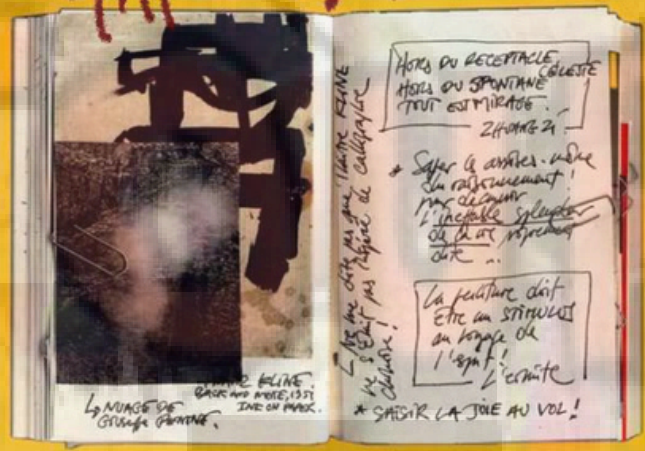 FRANZ KLINE.
BLACK AND WHITE, 1951
INK ON PAPER.
↳ NUAGE DE
GIUSEPPE PENONE.
↳ Ne me dites pas que Franz KLINE
ne s'était pas inspiré de calligraphie
chinoise!
HORS DU RECEPTACLE
CELESTE
HORS DU SPONTANÉ
TOUT EST MIRAGE.
ZHUANGZI
* Saper les assises-même
du raisonnement!
pour découvrir
l'ineffable splendeur
de la vie proprement
dite ...
La peinture doit
être un STIMULUS
au voyage de
l'esprit!
L'ermite
* SAISIR LA JOIE AU VOL!